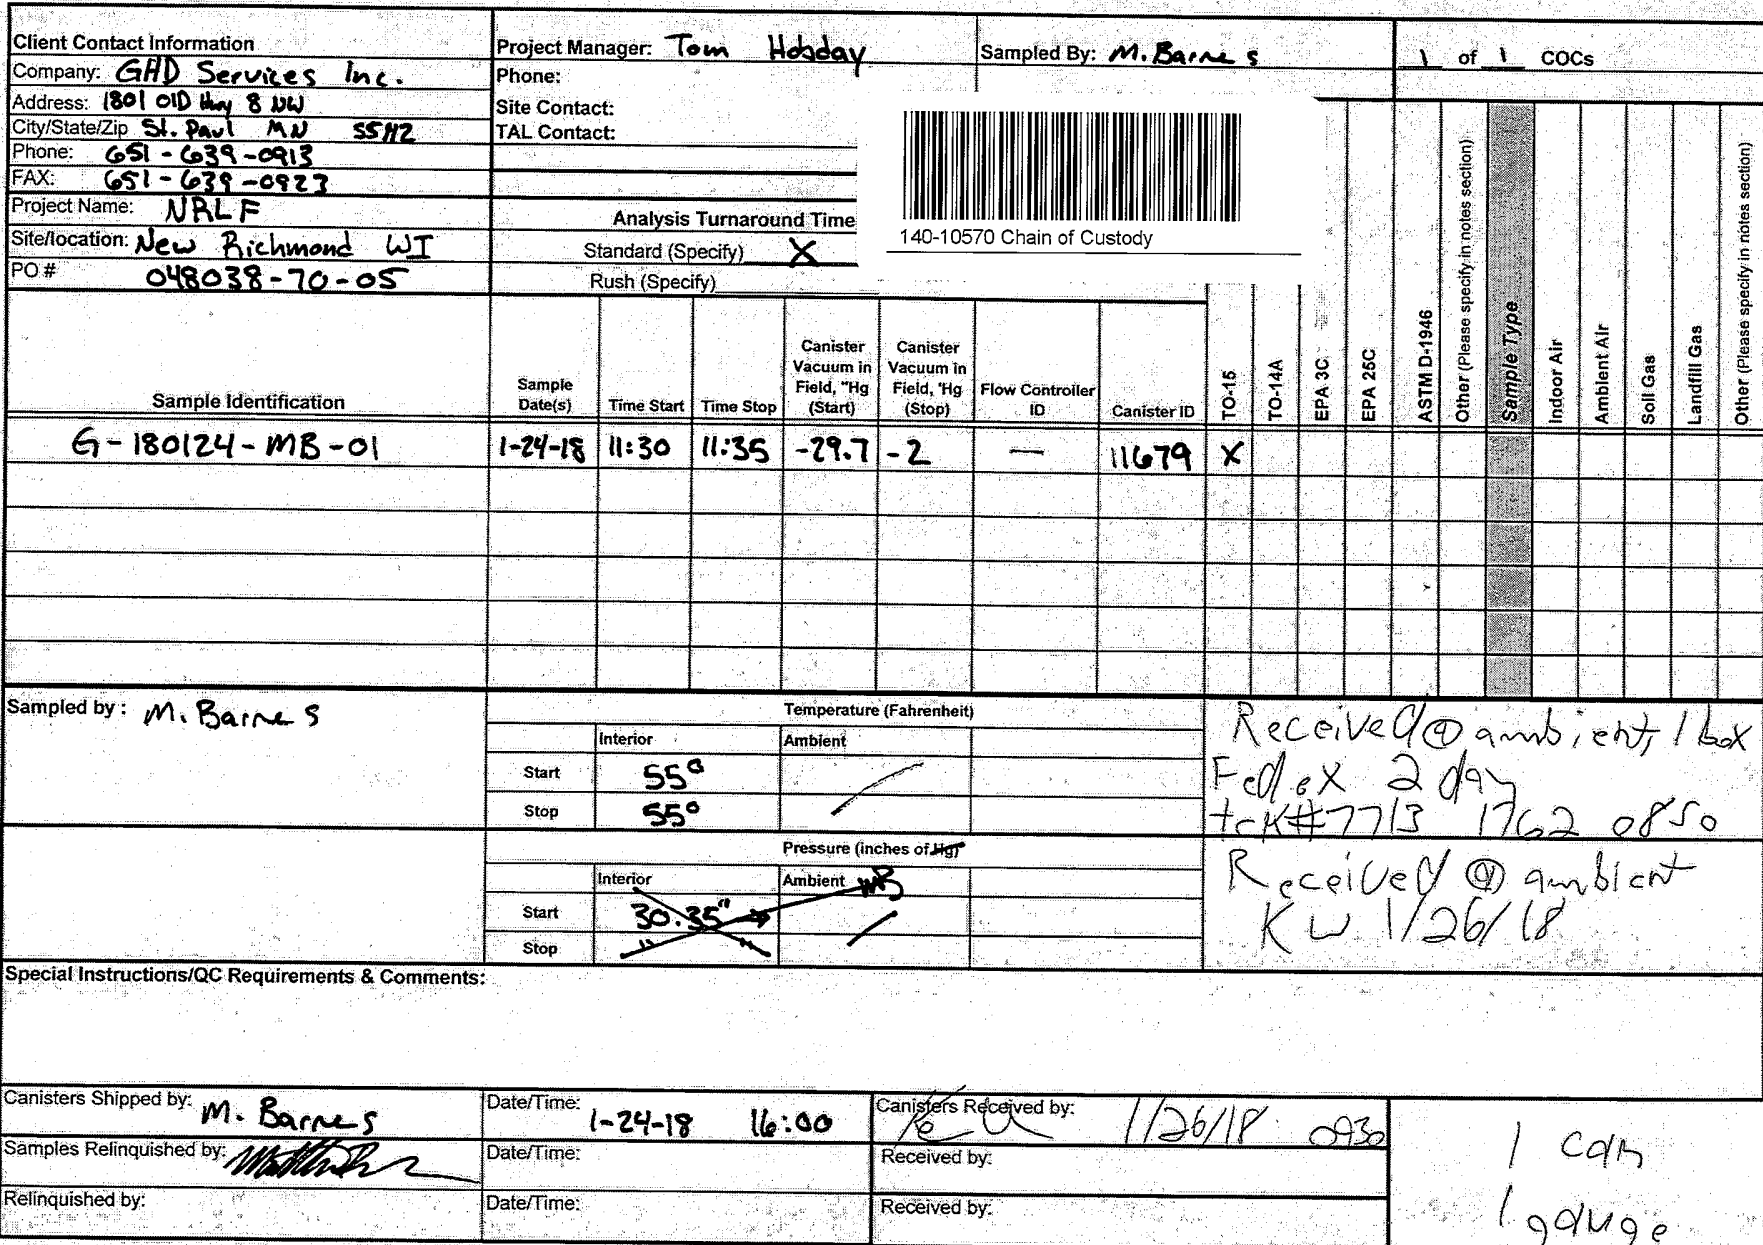 Client Contact Information
Company: GHD Services Inc.
Address: 1801 OlD Hwy 8 NW
City/State/Zip St. Paul MN 55112
Phone: 651-639-0913
FAX: 651-639-0923
Project Name: NRLF
Site/location: New Richmond WI
PO # 048038-70-05
Project Manager: Tom Hobday
Phone:
Site Contact:
TAL Contact:
Analysis Turnaround Time
Standard (Specify) X
Rush (Specify)
Sampled By: M. Barnes
1 of 1 COCs
140-10570 Chain of Custody
Sample Identification
Sample Date(s)
Time Start
Time Stop
Canister Vacuum in Field, "Hg (Start)
Canister Vacuum in Field, 'Hg (Stop)
Flow Controller ID
Canister ID
TO-15
TO-14A
EPA 3C
EPA 25C
ASTM D-1946
Other (Please specify in notes section)
Sample Type
Indoor Air
Ambient Air
Soil Gas
Landfill Gas
Other (Please specify in notes section)
G-180124-MB-01 1-24-18 11:30 11:35 -29.7 -2 — 11679 X
Sampled by : M. Barnes
Temperature (Fahrenheit)
Interior Ambient
Start 55°
Stop 55°
Pressure (inches of Hg)
Interior Ambient MB
Start 30.35"
Stop " "
Received @ ambient, 1 box
FedEx 2 day
trk# 7713 1762 0850
Received @ ambient
KW 1/26/18
Special Instructions/QC Requirements & Comments:
Canisters Shipped by: M. Barnes
Date/Time: 1-24-18 16:00
Canisters Received by: 1/26/18 0930
Samples Relinquished by:
Date/Time:
Received by:
Relinquished by:
Date/Time:
Received by:
1 can
1 gauge